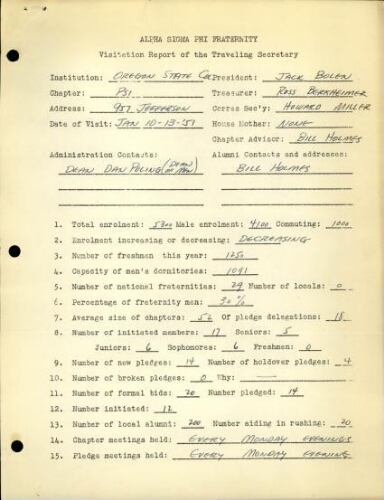 ALPHA SIGMA PHI FRATERNITY
Visitation Report of the Traveling Secretary
Institution: OREGON STATE COL President: JACK BOLEN
Chapter: PSI Treasurer: ROSS BERKHEIMER
Address: 957 JEFFERSON Corres Sec'y: HOWARD MILLER
Date of Visit: JAN 10-13-'51 House Mother: NONE
Chapter Advisor: BILL HOLMES
Administration Contacts: Alumni Contacts and addresses:
DEAN DAN POLING (DEAN OF MEN) BILL HOLMES
1. Total enrolment: 5200 Male enrolment: 4100 Commuting: 1000
2. Enrolment increasing or decreasing: DECREASING
3. Number of freshmen this year: 1250
4. Capacity of men's dormitories: 1091
5. Number of national fraternities: 29 Number of locals: 0
6. Percentage of fraternity men: 30%
7. Average size of chapters: 52 Of pledge delegations: 15
8. Number of initiated members: 17 Seniors: 5
Juniors: 6 Sophomores: 6 Freshmen: 0
9. Number of new pledges: 14 Number of holdover pledges: 4
10. Number of broken pledges: 0 Why:
11. Number of formal bids: 20 Number pledged: 14
12. Number initiated: 12
13. Number of local alumni: 200 Number aiding in rushing: 20
14. Chapter meetings held: EVERY MONDAY EVENINGS
15. Pledge meetings held: EVERY MONDAY EVENING